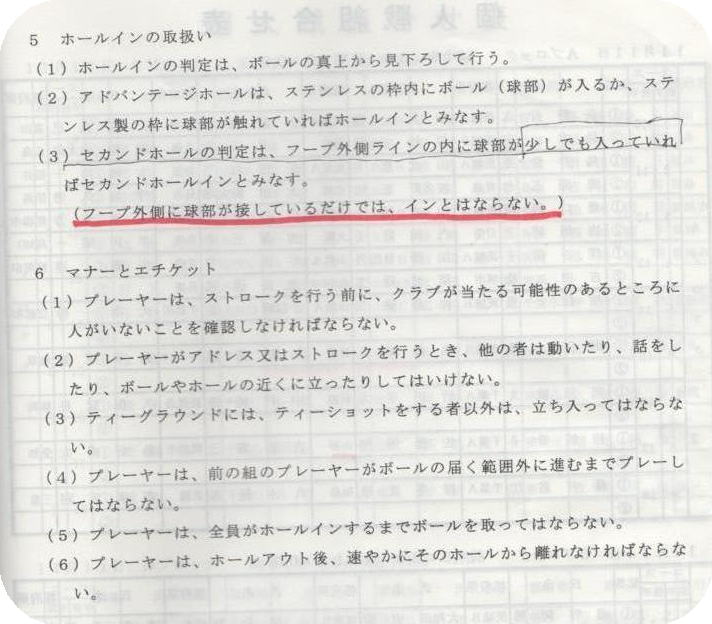 個人戦組合せ表
5　ホールインの取扱い
（1）ホールインの判定は、ボールの真上から見下ろして行う。
（2）アドバンテージホールは、ステンレスの枠内にボール（球部）が入るか、ステ
ンレス製の枠に球部が触れていればホールインとみなす。
（3）セカンドホールの判定は、フープ外側ラインの内に球部が少しでも入っていれ
ばセカンドホールインとみなす。
（フープ外側に球部が接しているだけでは、インとはならない。）
6　マナーとエチケット
（1）プレーヤーは、ストロークを行う前に、クラブが当たる可能性のあるところに
人がいないことを確認しなければならない。
（2）プレーヤーがアドレス又はストロークを行うとき、他の者は動いたり、話をし
たり、ボールやホールの近くに立ったりしてはいけない。
（3）ティーグラウンドには、ティーショットをする者以外は、立ち入ってはならな
い。
（4）プレーヤーは、前の組のプレーヤーがボールの届く範囲外に進むまでプレーし
てはならない。
（5）プレーヤーは、全員がホールインするまでボールを取ってはならない。
（6）プレーヤーは、ホールアウト後、速やかにそのホールから離れなければならな
い。